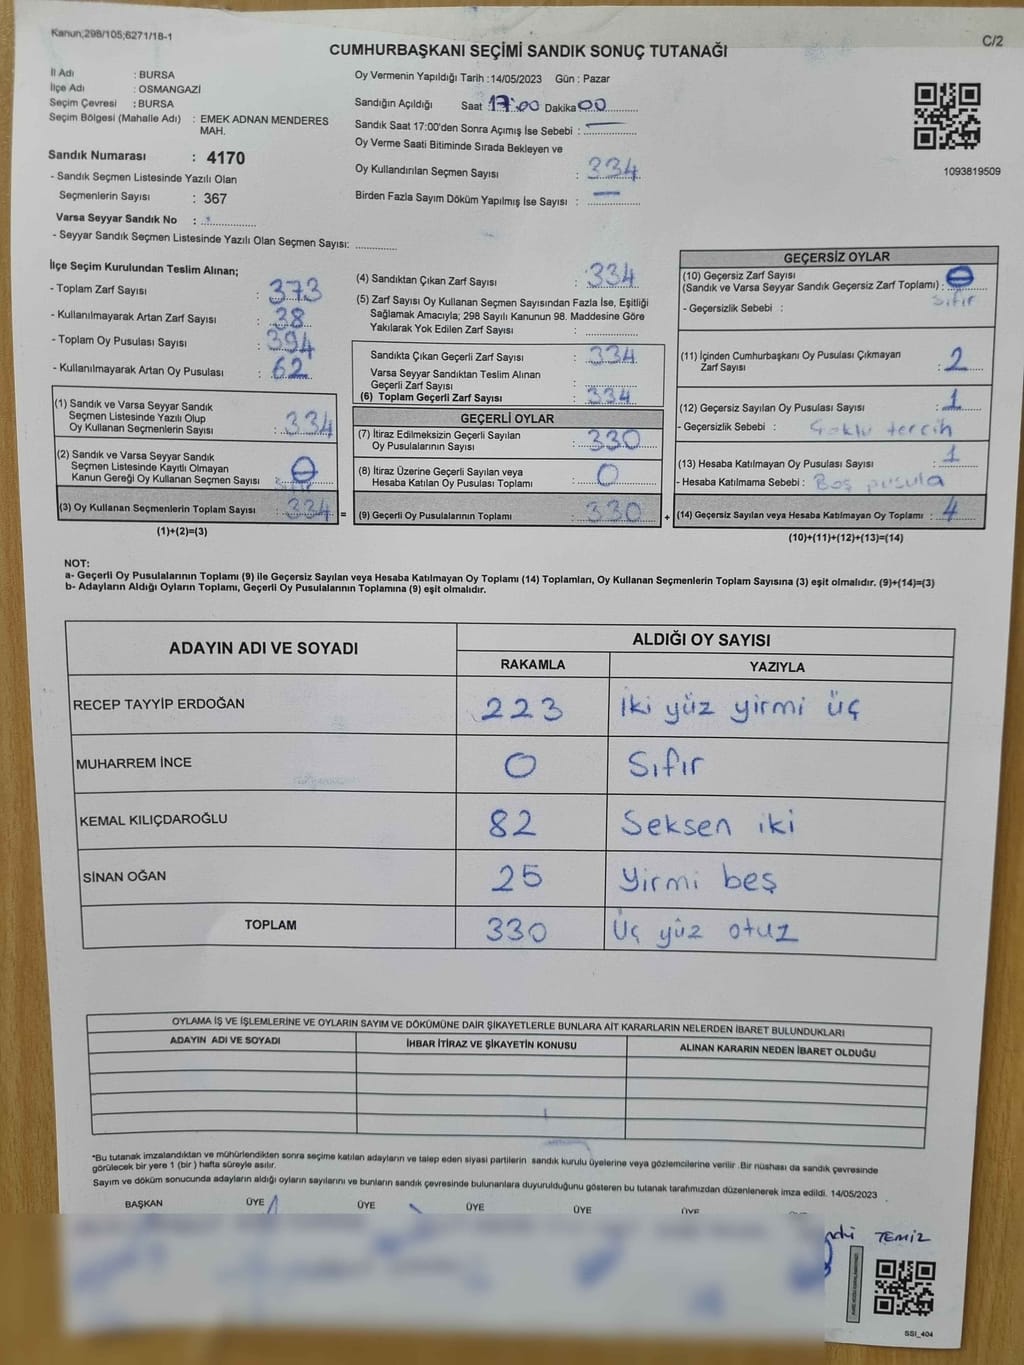 Kanun;298/105;6271/18-1
C/2
CUMHURBAŞKANI SEÇİMİ SANDIK SONUÇ TUTANAĞI
İl Adı : BURSA
İlçe Adı : OSMANGAZİ
Seçim Çevresi : BURSA
Seçim Bölgesi (Mahalle Adı) : EMEK ADNAN MENDERES
MAH.
Sandık Numarası : 4170
- Sandık Seçmen Listesinde Yazılı Olan
Seçmenlerin Sayısı : 367
Varsa Seyyar Sandık No :
- Seyyar Sandık Seçmen Listesinde Yazılı Olan Seçmen Sayısı:
Oy Vermenin Yapıldığı Tarih :14/05/2023 Gün : Pazar
Sandığın Açıldığı Saat 17:00 Dakika 00
Sandık Saat 17:00'den Sonra Açımış İse Sebebi :
Oy Verme Saati Bitiminde Sırada Bekleyen ve
Oy Kullandırılan Seçmen Sayısı : 334
Birden Fazla Sayım Döküm Yapılmış İse Sayısı : —
1093819509
İlçe Seçim Kurulundan Teslim Alınan;
- Toplam Zarf Sayısı : 373
- Kullanılmayarak Artan Zarf Sayısı : 38
- Toplam Oy Pusulası Sayısı : 394
- Kullanılmayarak Artan Oy Pusulası : 62
(1) Sandık ve Varsa Seyyar Sandık
Seçmen Listesinde Yazılı Olup
Oy Kullanan Seçmenlerin Sayısı : 334
(2) Sandık ve Varsa Seyyar Sandık
Seçmen Listesinde Kayıtlı Olmayan
Kanun Gereği Oy Kullanan Seçmen Sayısı : 0
(3) Oy Kullanan Seçmenlerin Toplam Sayısı : 334
(1)+(2)=(3)
(4) Sandıktan Çıkan Zarf Sayısı : 334
(5) Zarf Sayısı Oy Kullanan Seçmen Sayısından Fazla İse, Eşitliği
Sağlamak Amacıyla; 298 Sayılı Kanunun 98. Maddesine Göre
Yakılarak Yok Edilen Zarf Sayısı :
Sandıkta Çıkan Geçerli Zarf Sayısı : 334
Varsa Seyyar Sandıktan Teslim Alınan
Geçerli Zarf Sayısı :
(6) Toplam Geçerli Zarf Sayısı : 334
GEÇERLİ OYLAR
(7) İtiraz Edilmeksizin Geçerli Sayılan
Oy Pusulalarının Sayısı : 330
(8) İtiraz Üzerine Geçerli Sayılan veya
Hesaba Katılan Oy Pusulası Toplamı : 0
= (9) Geçerli Oy Pusulalarının Toplamı : 330 +
GEÇERSİZ OYLAR
(10) Geçersiz Zarf Sayısı
(Sandık ve Varsa Seyyar Sandık Geçersiz Zarf Toplamı) : 0
sıfır
- Geçersizlik Sebebi :
(11) İçinden Cumhurbaşkanı Oy Pusulası Çıkmayan
Zarf Sayısı : 2
(12) Geçersiz Sayılan Oy Pusulası Sayısı : 1
- Geçersizlik Sebebi : Çoklu tercih
(13) Hesaba Katılmayan Oy Pusulası Sayısı : 1
- Hesaba Katılmama Sebebi : Boş pusula
(14) Geçersiz Sayılan veya Hesaba Katılmayan Oy Toplamı : 4
(10)+(11)+(12)+(13)=(14)
NOT:
a- Geçerli Oy Pusulalarının Toplamı (9) ile Geçersiz Sayılan veya Hesaba Katılmayan Oy Toplamı (14) Toplamları, Oy Kullanan Seçmenlerin Toplam Sayısına (3) eşit olmalıdır. (9)+(14)=(3)
b- Adayların Aldığı Oyların Toplamı, Geçerli Oy Pusulalarının Toplamına (9) eşit olmalıdır.
ADAYIN ADI VE SOYADI
ALDIĞI OY SAYISI
RAKAMLA YAZIYLA
RECEP TAYYİP ERDOĞAN 223 İki yüz yirmi üç
MUHARREM İNCE 0 Sıfır
KEMAL KILIÇDAROĞLU 82 Seksen iki
SİNAN OĞAN 25 Yirmi beş
TOPLAM 330 Üç yüz otuz
OYLAMA İŞ VE İŞLEMLERİNE VE OYLARIN SAYIM VE DÖKÜMÜNE DAİR ŞİKAYETLERLE BUNLARA AİT KARARLARIN NELERDEN İBARET BULUNDUKLARI
ADAYIN ADI VE SOYADI İHBAR İTİRAZ VE ŞİKAYETİN KONUSU ALINAN KARARIN NEDEN İBARET OLDUĞU
*Bu tutanak imzalandıktan ve mühürlendikten sonra seçime katılan adayların ve talep eden siyasi partilerin sandık kurulu üyelerine veya gözlemcilerine verilir .Bir nüshası da sandık çevresinde
görülecek bir yere 1 (bir ) hafta süreyle asılır.
Sayım ve döküm sonucunda adayların aldığı oyların sayılarını ve bunların sandık çevresinde bulunanlara duyurulduğunu gösteren bu tutanak tarafımızdan düzenlenerek imza edildi. 14/05/2023
BAŞKAN ÜYE ÜYE ÜYE ÜYE ÜYE
TEMİZ
SSI_404